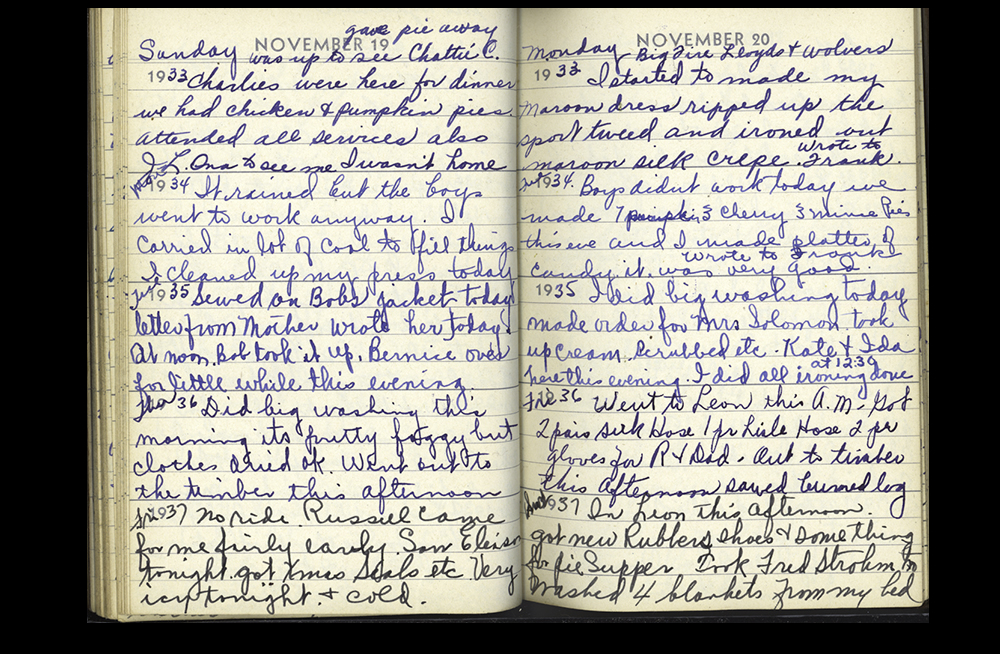 gave pie away
Sunday NOVEMBER 19
was up to see Chattie C.
1933 Charlies were here for dinner
we had chicken & pumpkin pies.
attended all services also
I. L. Ona to see me I wasn't home
1934 It rained but the boys
went to work anyway. I
carried in lot of coal to fill things
& cleaned up my press today
1935 Sewed on Bobs jacket today
letter from Mother wrote her today.
At noon. Bob took it up. Bernice over
for little while this evening.
1936 Did big washing this
morning its pretty foggy but
clothes dried ok. Went out to
the timber this afternoon
Fri 1937 No ride. Russiel came
for me fairly early. Saw
tonight. got Xmas Seals etc Very
icy tonight. & cold.
Monday NOVEMBER 20
Big Fire Lloyds & Wolvers
1933 I started to made my
maroon dress ripped up the
sport tweed and ironed out
maroon silk crepe. Wrote to Frank.
1934. Boys didnt work today we
made 7 pumpkin 3 cherry 3 mince Pies
this eve and I made platter of
candy it was very good. Wrote to Frank
1935 I did big washing today
made order for Mrs Solomon took
up cream. Scrubbed etc. Kate & Ida
here this evening. I did all ironing done at 12:30
Fri 1936 Went to Leon this A.M. Got
2 pair silk Hose 1 pr Lisle Hose 2 pr
gloves for R & Dad. Out to timber
this afternoon sawed burned log
1937 In Leon this afternoon.
got new Rubbers, shoes & something
for pie Supper Took Fred Strohm
Washed 4 blankets from my bed